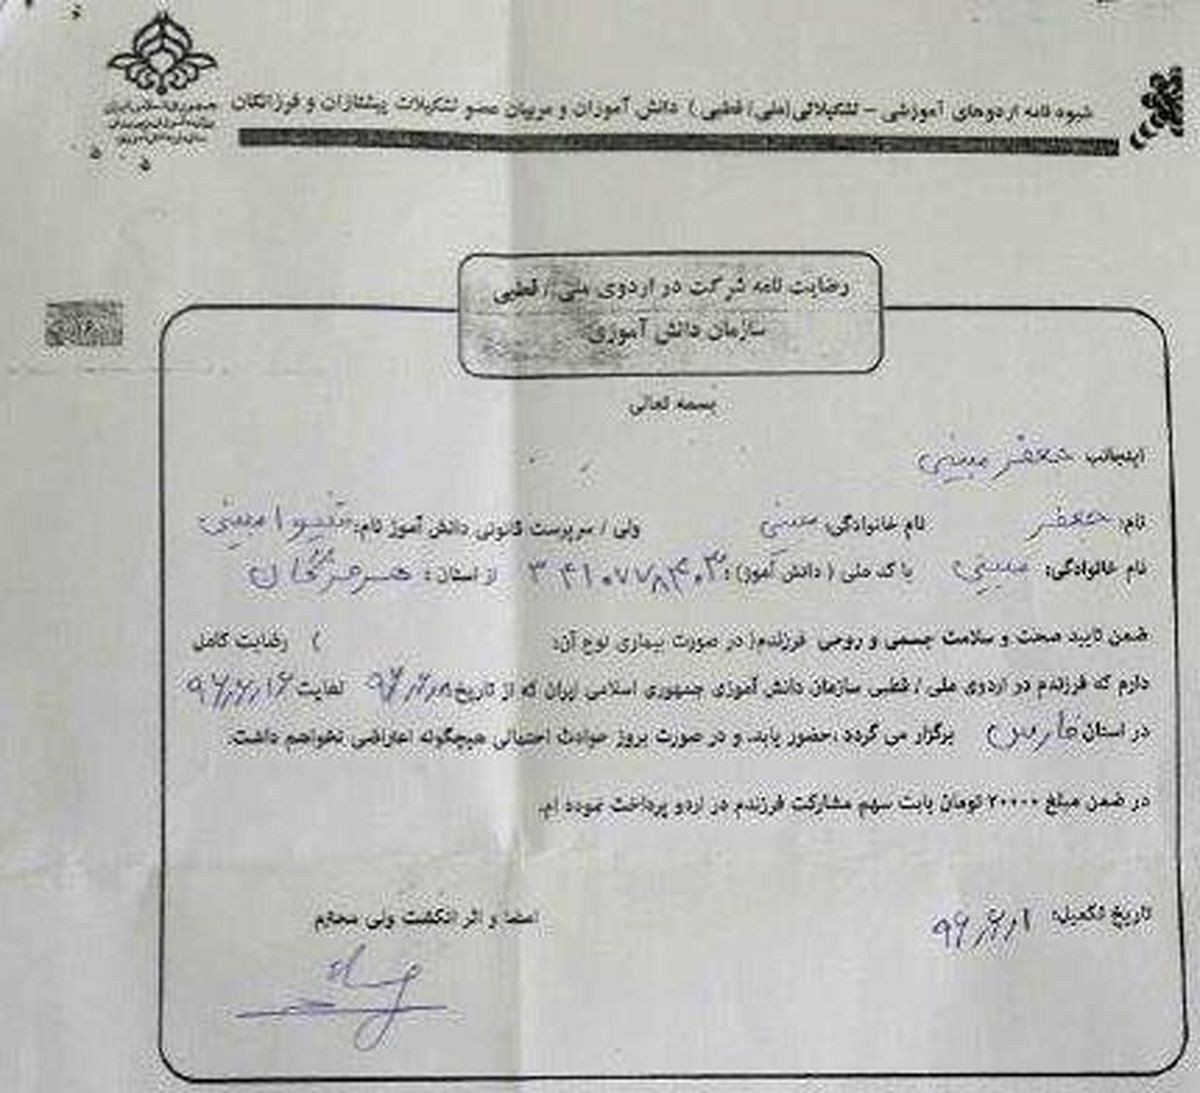 شیوه نامه اردوهای آموزشی - تشکیلاتی (ملی / قطبی) دانش آموزان و مربیان عضو تشکیلات پیشتازان و فرزانگان
جمهوری اسلامی ایران
رضایت نامه شرکت در اردوی ملی / قطبی
سازمان دانش آموزی
بسمه تعالی
اینجانب جعفر مبینی
نام: جعفر نام خانوادگی: مبینی ولی / سرپرست قانونی دانش آموز نام:
نام خانوادگی: مبینی با کد ملی ( دانش آموز): ۳۴۱۰۷۷۸۴۰۳ از استان: هرمزگان
ضمن تایید صحت و سلامت جسمی و روحی فرزندم( در صورت بیماری نوع آن: ) رضایت کامل
دارم که فرزندم در اردوی ملی / قطبی سازمان دانش آموزی جمهوری اسلامی ایران که از تاریخ ۹۶/۶/۸ لغایت ۹۶/۶/۱۶
در استان فارس برگزار می گردد ،حضور یابد. و در صورت بروز حوادث احتمالی هیچگونه اعتراضی نخواهم داشت.
در ضمن مبلغ ۲۰۰۰۰ تومان بابت سهم مشارکت فرزندم در اردو پرداخت نموده ام.
تاریخ تکمیل: ۹۶/۶/۱ امضا و اثر انگشت ولی محترم